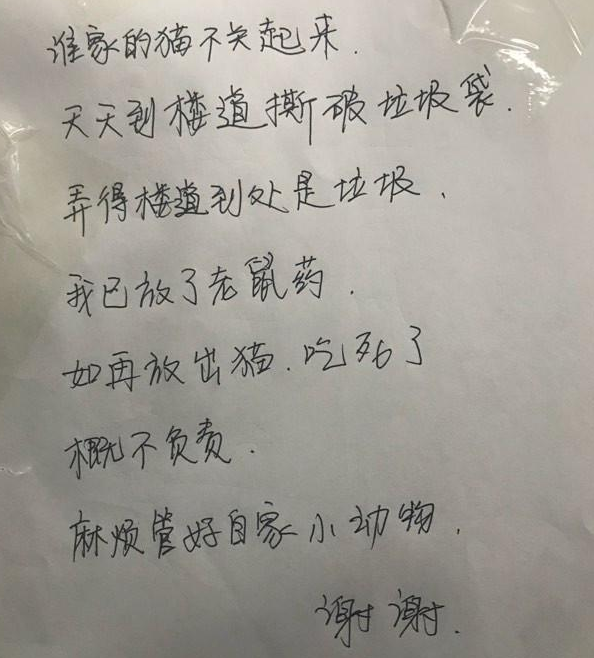 谁家的猫不关起来.
天天到楼道撕破垃圾袋.
弄得楼道到处是垃圾、
我已放了老鼠药.
如再放出猫.吃死了
概不负责.
麻烦管好自家小动物,
谢谢.